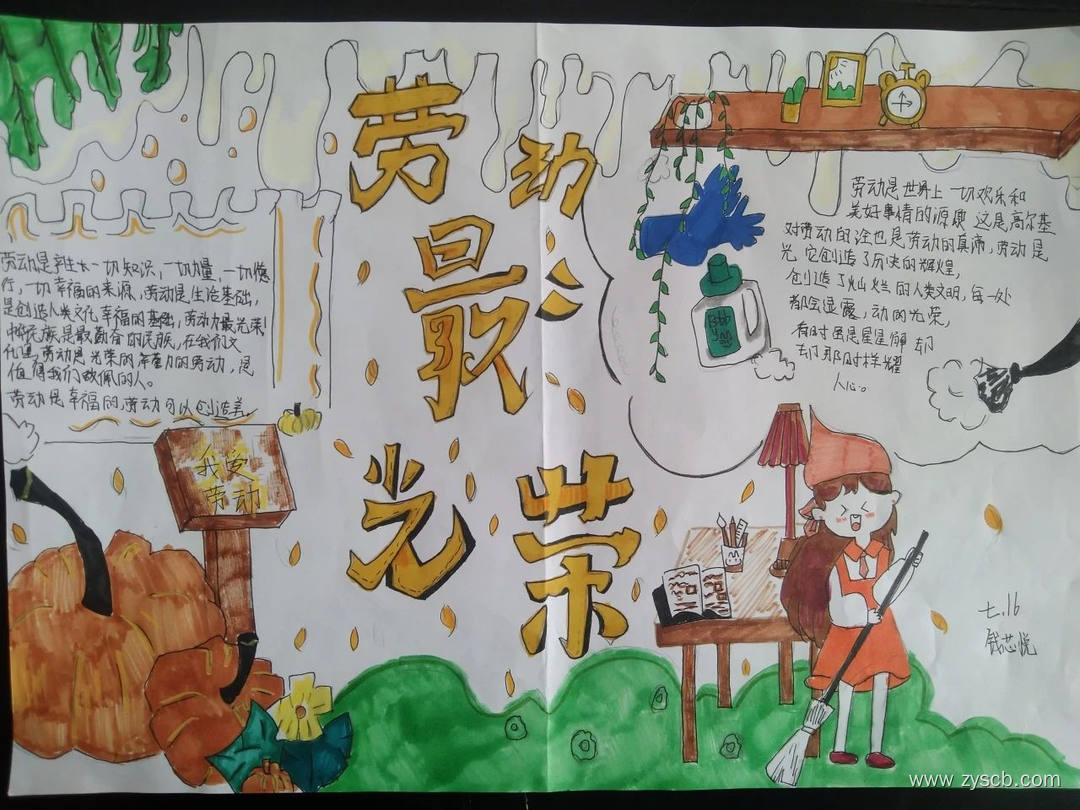 劳动最光荣
劳动是产生一切知识，一切力量，一切德
行，一切幸福的来源，劳动是生活基础，
是创造人类文化幸福的基础，劳动力最光荣！
民族是最勤奋的民族，在我们文
化里，劳动是光荣的 的劳动，是
值得我们敬佩的人。
劳动是幸福的，劳动可以创造美。
我爱
劳动
劳动是世界上一切欢乐和
美好事情的源 这是高尔基
对劳动的 也是劳动的真谛，劳动是
光，它创造了历史的辉煌，
创造了灿烂的人类文明，每一处
都会显露，动的光荣，
有时虽是星星
却 那 样耀
人心。
七.16
钱芯悦
www.zyscb.com